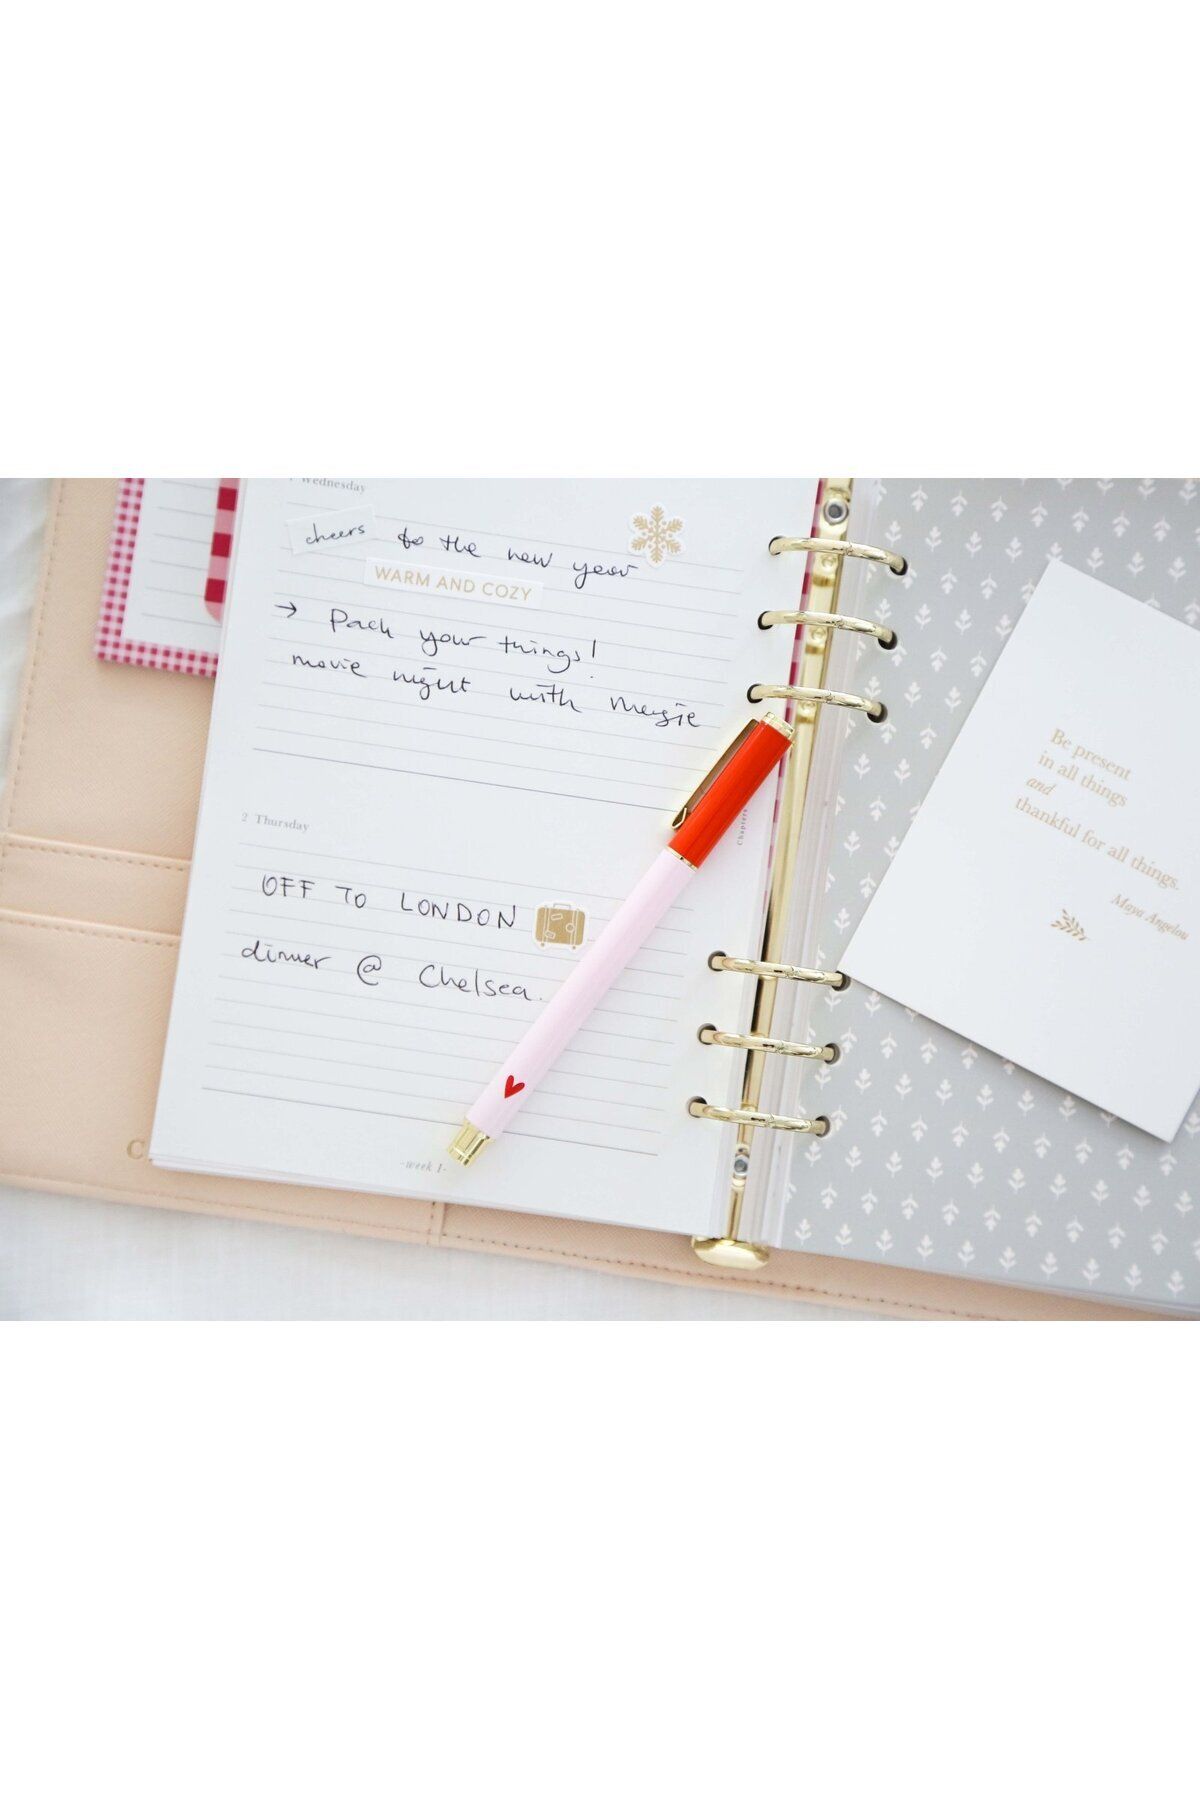 Wednesday
cheers to the new year
WARM AND COZY
→ Pack your things!
movie night with Megie
2 Thursday
OFF TO LONDON
dinner @ Chelsea.
-week 1-
Chapters
C
Be present
in all things
and
thankful for all things.
Maya Angelou